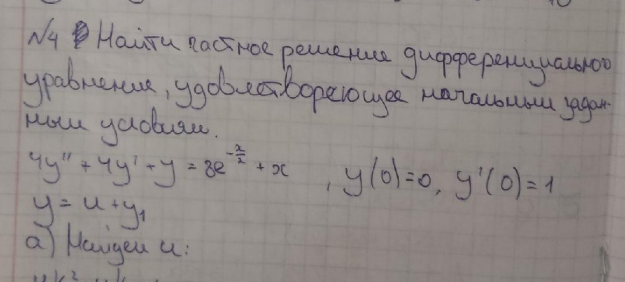 №4 Найти частное решение дифференциального
уравнения, удовлетворяющее начальным задан-
ным условиям.
4y'' + 4y' + y = 8e^{-x/2} + x , y(0)=0, y'(0)=1
y = u + y₁
а) Найдем u: